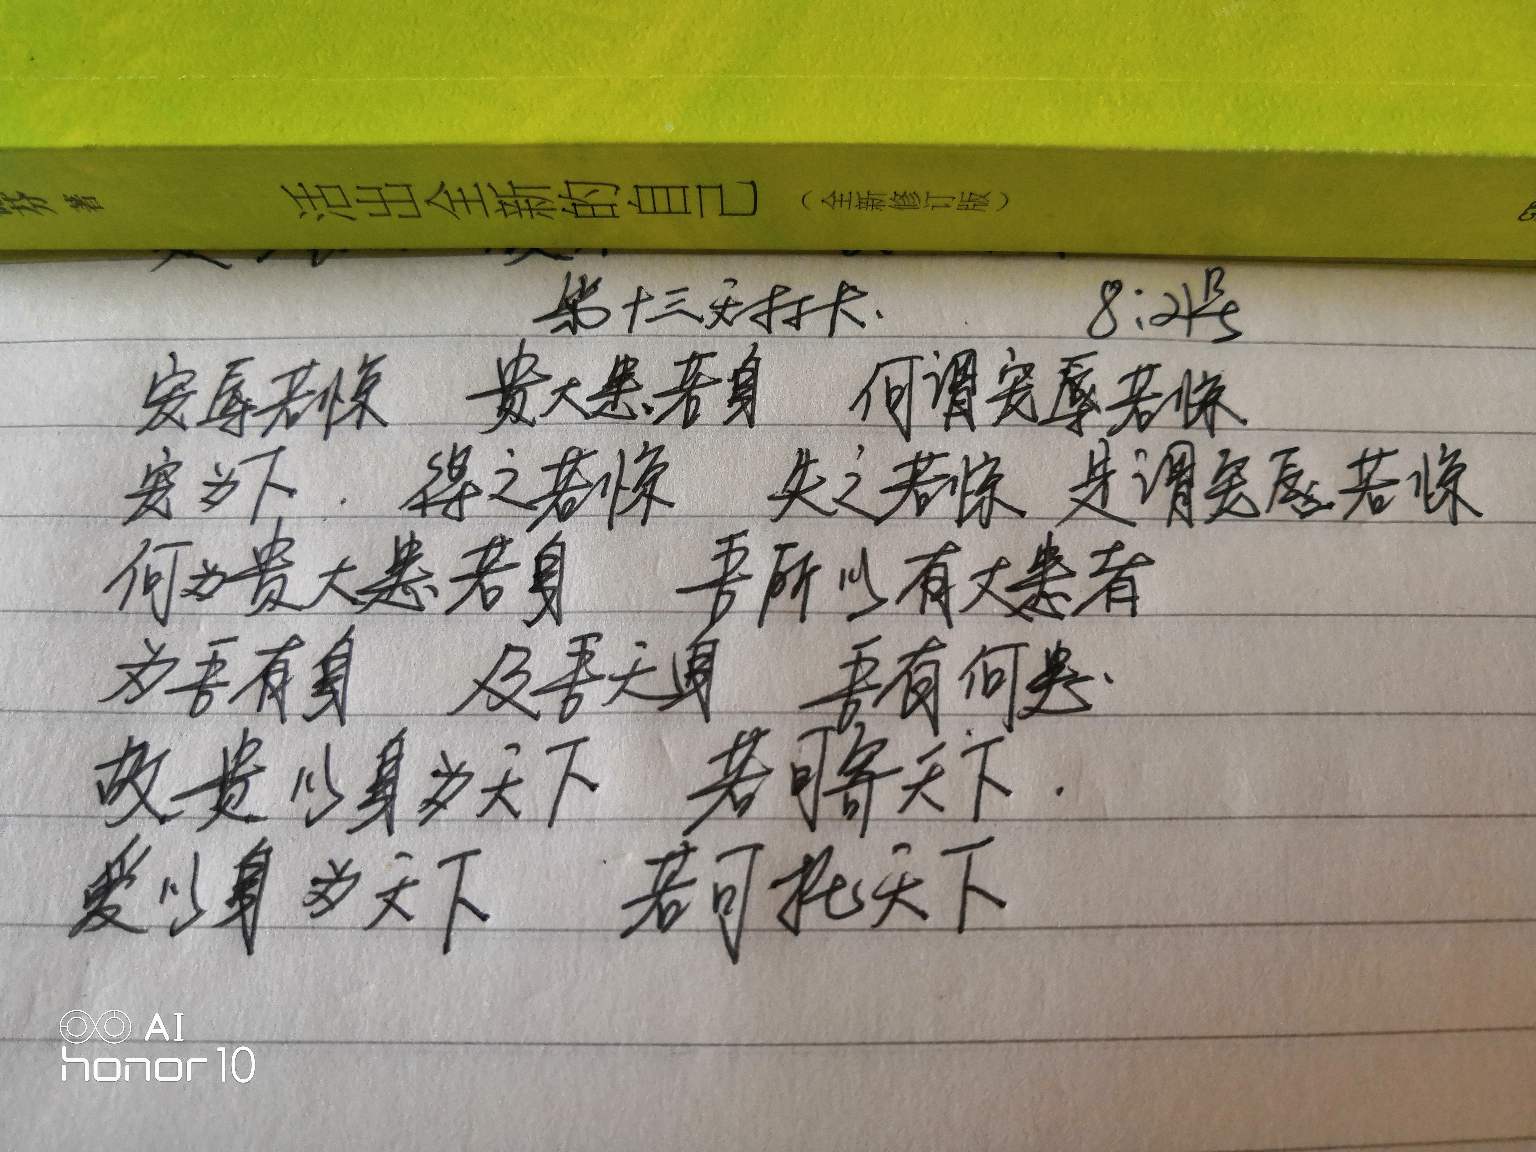 著
活出全新的自己 (全新修订版)
第十三天打卡. 8:21号
宠辱若惊 贵大患若身 何谓宠辱若惊
宠为下. 得之若惊 失之若惊 是谓宠辱若惊
何为贵大患若身 吾所以有大患者
为吾有身 及吾无身 吾有何患.
故贵以身为天下 若可寄天下.
爱以身为天下 若可托天下
AI
honor 10